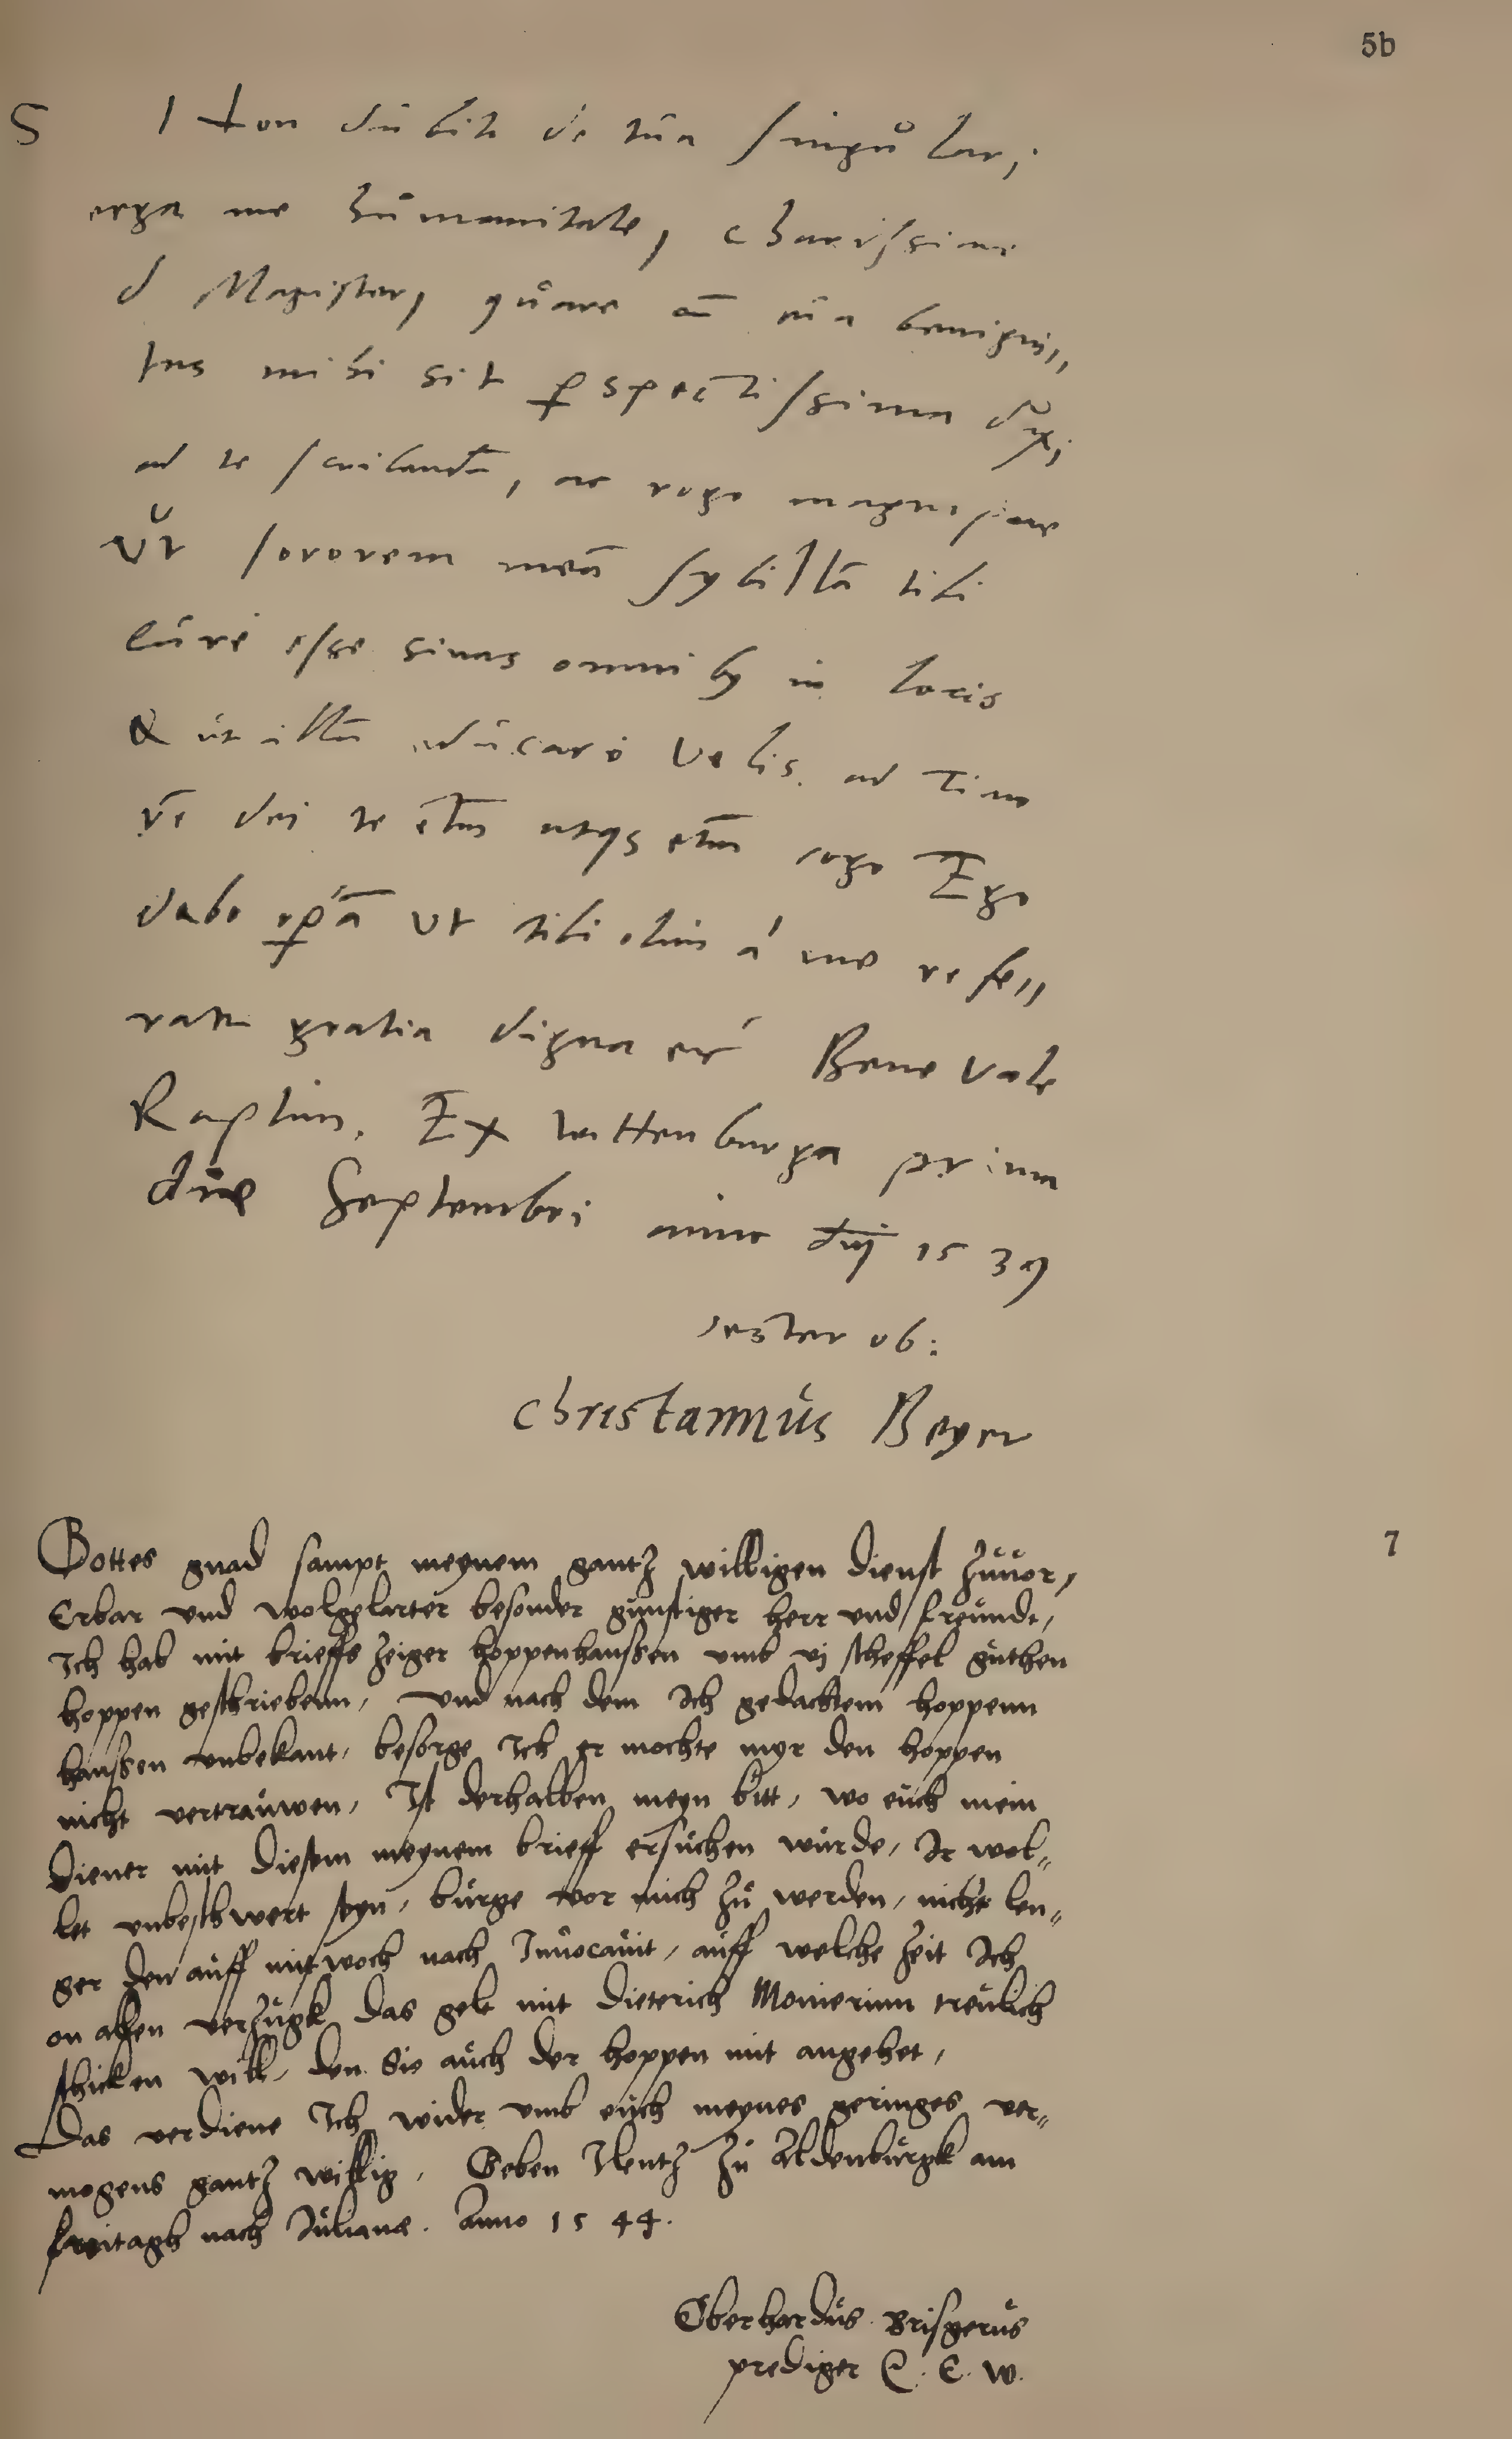 5b
S Non dubito de tua singulari
erga me humanitate, charissime
d Magister, quare cū tua benigni„
tas mihi sit p̱spectissima duxi
ad te scribendū, ac rogo magnopere
Ut sororem meā Sybillā tibi
curę esse sinas omnibꝫ in locis
& ut illā educare Velis ad Timo
rē dei te etiā atqꝫ etiā rogo Ego
dabo op̱ā ut tibi olim á me refe„
ratur gratia digna Bene Vale
Raptim. Ex Wittenburga prima
die Septembri anno dnj 1539
vester ob:
Christannus Beyer
7
Gottes gnad sampt meynem gantz willigen dienst zuuor,
Erbar und wolgelarter besonder gunstiger herr und freundt,
Ich hab mit brieffs zeiger hoppenhanssen umb vj scheffel guthen
hoppen geschriebenn, und nach dem Ich gedachtem hoppenn
hanssen unbekant, besorge Ich er mochte myr den hoppen
nicht vertrauwen, Ist derhalben meyn bitt, wo euch mein
diener mit diesem meynem brieff ersuchen wurde, Ir wol„
let unbeschwert seyn, burge vor mich zu werden, nicht len„
ger den auff mitwoch nach Inuocauit, auff welche zeit Ich
on allen verzugk das gelt mit Dieterich Monierinn treulich
schicken will, den Sie auch der hoppen mit angehet,
Das verdiene Ich wider umb euch meynes geringes ver„
mogens gantz willig, Geben Ilentz zu Aldenburgk am
freitagh nach Juliane. Anno 1544.
Eberhardus Brisgerus
prediger E. W.